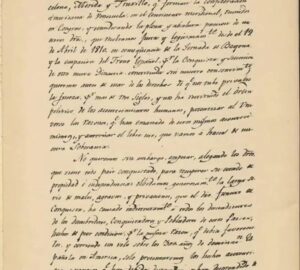 celona, Merida y Truxillo, qe forman la confederacion
americana de Venezuela en el continente meridional, reunidos
en Congreso, y considerando la plena y absoluta posesion de nues
tros dros, que recobramos justa y legitimamte desde el 19
de Abril de 1810, en consequencia de la Jornada de Bayona
y la ocupacion del Trono Español, pr la Conquista, y sucesion
de otra nueva Dinastia constituida sin nuestro consentimto:
queremos antes de usar de los derechos de qe nos tubo privados
la fuerza, pr mas de tres siglos, y nos ha restituido el orden
político de los acontecimientos humanos, patentizar al Uni
verso las razones, qe han emanado de estos mismos acontecimtos
y autorizan el libre uso, que vamos á hacer de
nuestra Soberania.
No queremos sin embargo, empezar, alegando los dros
que tiene todo pais conquistado, para recuperar su estado de
propiedad é independencia: olvidamos generosamte la larga se
rie de males, agravios, y privaciones, que el dro funesto de
Conquista, ha causado indistintamte á todos los descendientes
de los Descubridores, Conquistadores y Pobladores de estos Paises,
hechos de peor condicion, pr la misma razon, qe debia favorecer
los; y corriendo un velo sobre los 300 años de dominacion es
pañola en America, solo presentaremos los hechos autenti